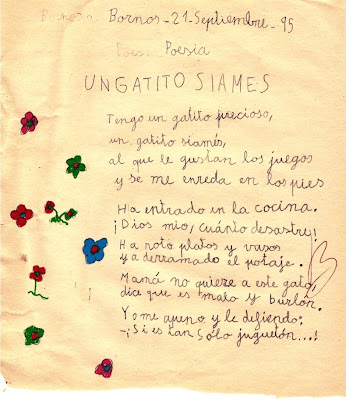 Bornos Bornos-21-Septiembre-95
Poesia Poesía
UN GATITO SIAMES
Tengo un gatito precioso,
un gatito siamés,
al que le gustan los juegos
y se me enreda en los pies
Ha entrado en la cocina.
¡Dios mio, cuánto desastre!
Ha roto platos y vasos
y a derramado el potaje.
Mamá no quiere a este gato,
dice que es malo y burlón.
Yo me apeno y le defiendo:
-¡Si es tan sólo juguetón...!